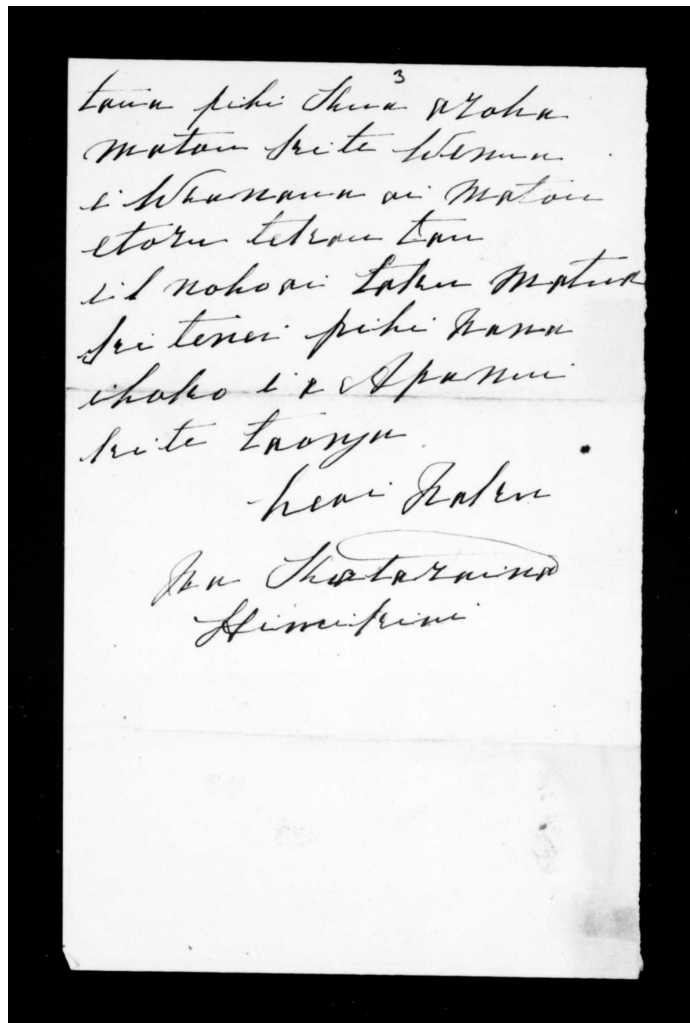 3
taua pihi Kua aroha
matou ki te Wenua
i Whanau ai matou
etoru tekau tau
i noho ai taku Matua
ki tenei pihi nana
ihoko i a Apanui
ki te taonga
heoi naku
Na Kataraina